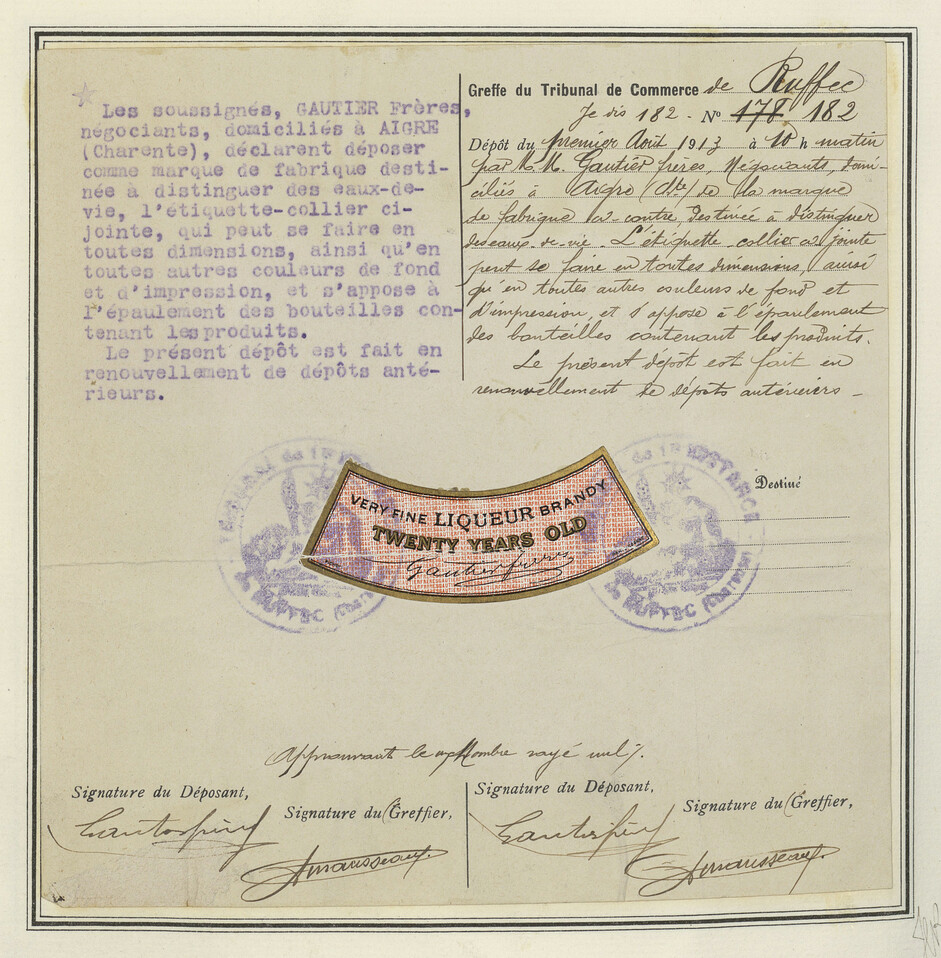 Les soussignés, GAUTIER Frères,
négociants, domiciliés à AIGRE
(Charente), déclarent déposer
comme marque de fabrique desti-
née à distinguer des eaux-de-
vie, l'étiquette-collier ci-
jointe, qui peut se faire en
toutes dimensions, ainsi qu'en
toutes autres couleurs de fond
et d'impression, et s'appose à
l'épaulement des bouteilles con-
tenant les produits.
Le présent dépôt est fait en
renouvellement de dépôts anté-
rieurs.
Greffe du Tribunal de Commerce de Ruffec
Je dis 182 - No 178 182
Dépôt du premier Août 1913 à 10 h matin
par M.M. Gautier frères, Négociants, domi-
ciliés à Aigre (Cte) de la marque
de fabrique ci-contre destinée à distinguer
des eaux-de-vie. L'étiquette-collier ci-jointe
peut se faire en toutes dimensions, ainsi
qu'en toutes autres couleurs de fond et
d'impression, et s'appose à l'épaulement
des bouteilles contenant les produits.
Le présent dépôt est fait en
renouvellement de dépôts antérieurs -
TRIBUNAL de 1re
de RUFFEC
VERY FINE LIQUEUR BRANDY
TWENTY YEARS OLD
Gautier frères
INSTANCE
de RUFFEC
Destiné
Approuvant le nombre rayé nul
Signature du Déposant,
Signature du Greffier,
Gautier frères
Signature du Déposant,
Signature du Greffier,
Gautier frères